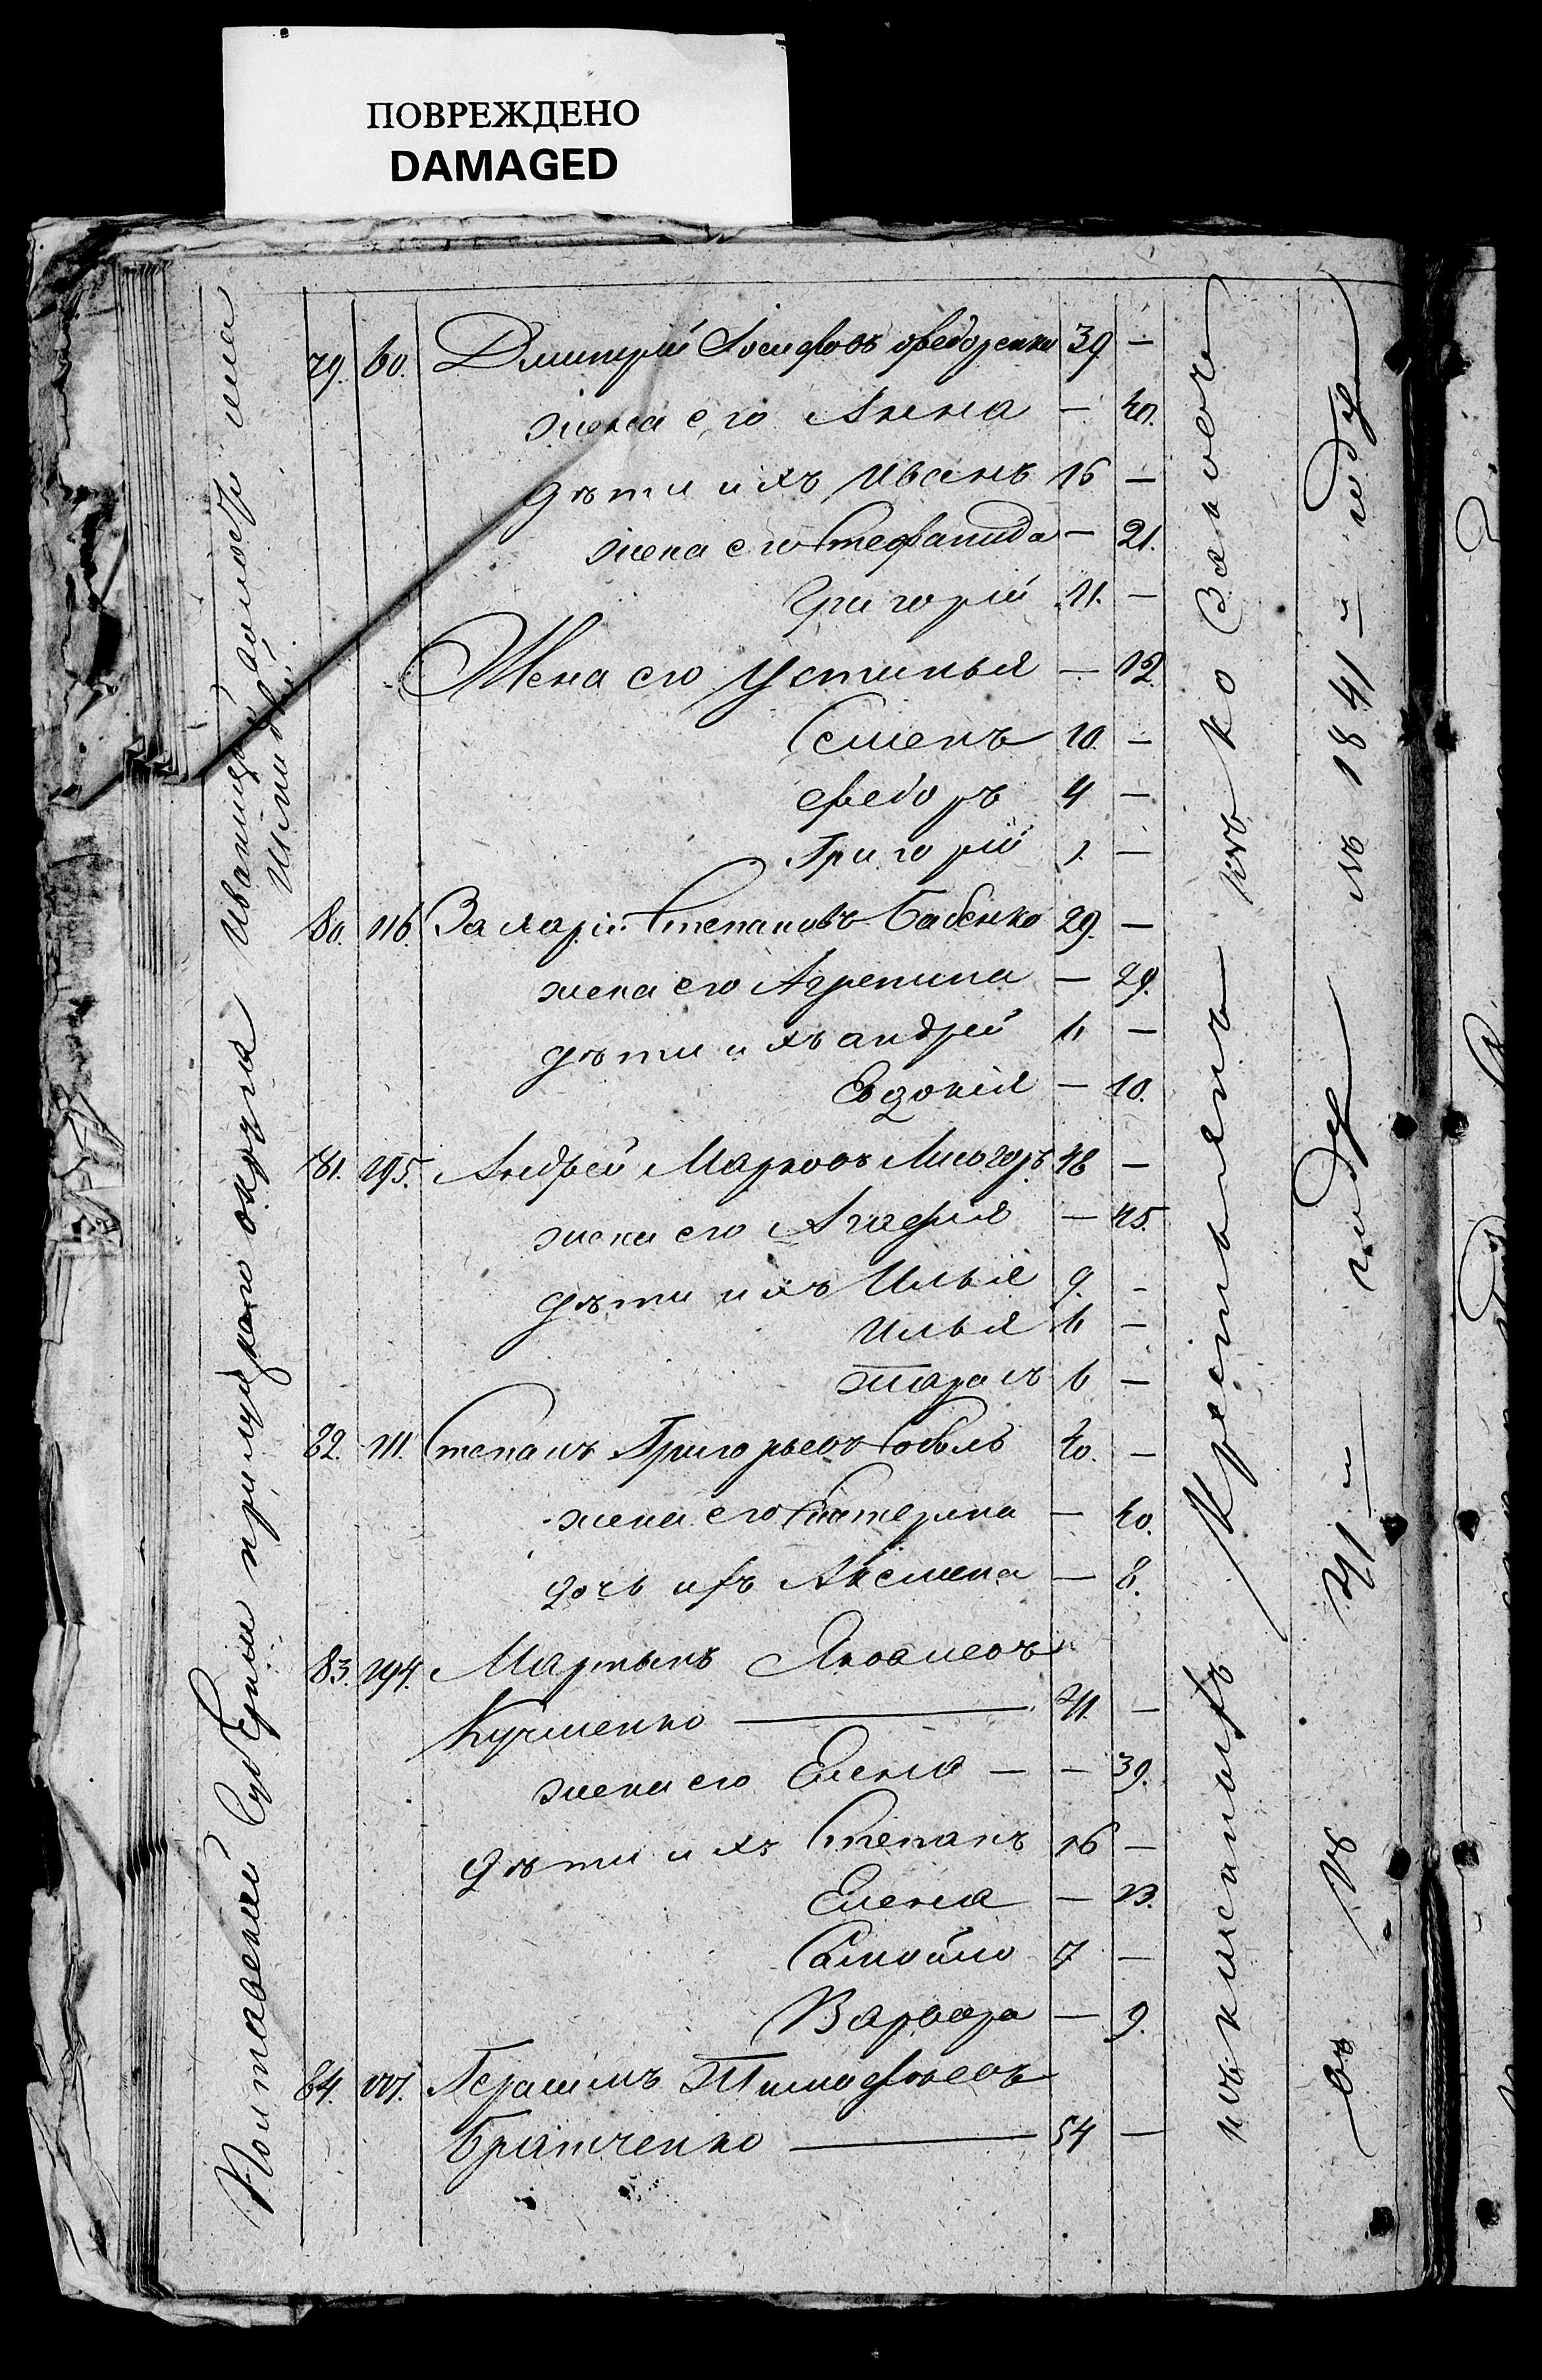 ПОВРЕЖДЕНО
DAMAGED
Полтавской Губерніи прилуцкаго округа Иваницкой волости
79. 60. Дмитрій Іосифовъ Федоренко 39 —
жена его Анна — 40.
дѣти ихъ Иванъ 16 —
жена его Стефанида — 21.
Григорій 11. —
Жена его Устинья — 12.
Семенъ 10. —
Федоръ 4 —
Григорій 1. —
80. 116. Захарій Степановъ Бабенко 29. —
жена его Агрепина — 29.
дѣти ихъ андрей 6 —
Евдокія — 10.
81. 195. Андрей Марковъ Лисогоръ 48 —
жена его Агафия — 45.
дѣти ихъ Илья 9. —
Илья 6 —
Тарасъ 6 —
82. 111. Степанъ Григорьевъ Соболь 40. —
жена его Екатерина — 40.
дочь ихъ Аксмена — 8.
83. 194. Мартынъ Яковлевъ
Кузменко — 41. —
жена его Елена — — 39.
дѣти ихъ Степанъ 16 —
Елена — 13.
Самойло 7 —
Варвара — 9.
84. 107. Герасимъ Тимофѣевъ
Братченко — 54 —
въ 41 году въ 1841 году